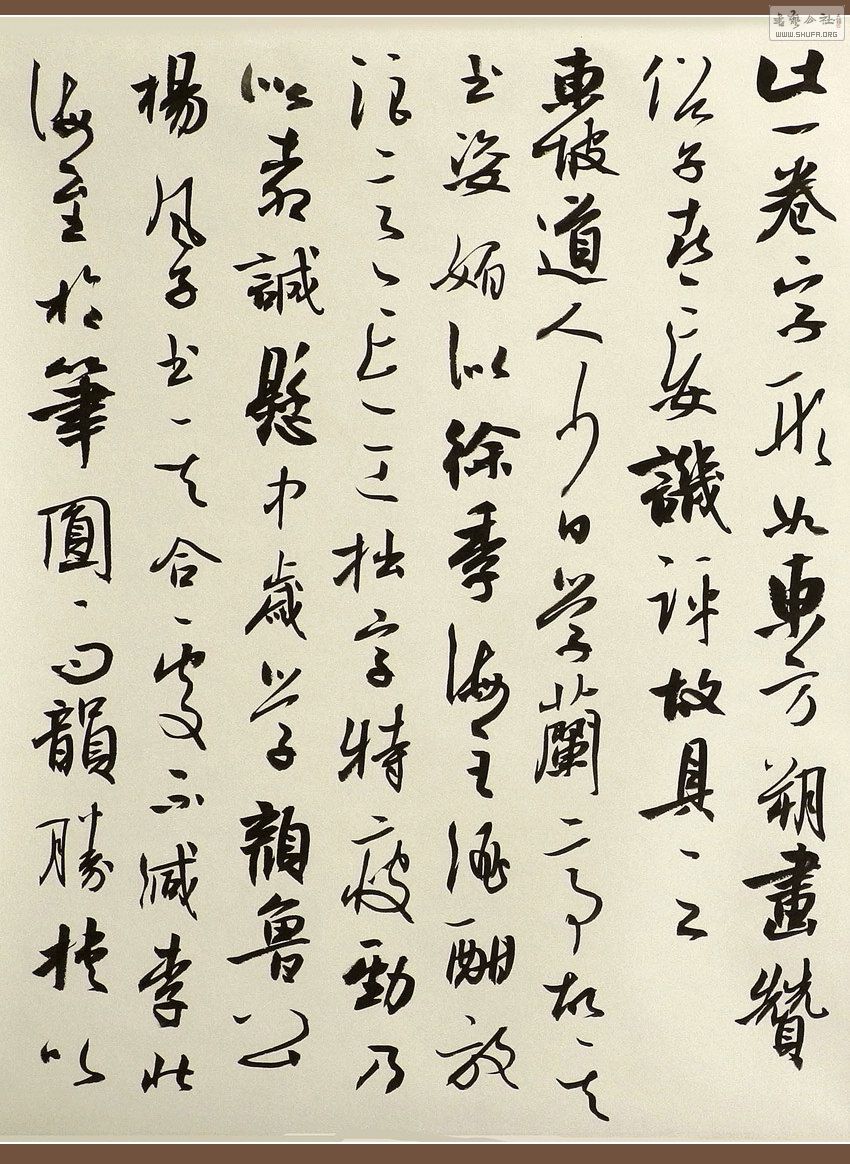 書藝公社
WWW.SHUFA.ORG
此一卷字形如東方朔畫贊
俗子喜妄譏評故具之
東坡道人少日學蘭亭故其
书姿媚似徐季海至酒酣放
浪意忘工拙字特瘦勁乃
似柳誠懸中歲學顏魯公
楊風子书其合處不減李北
海至於筆圓而韻勝挾以